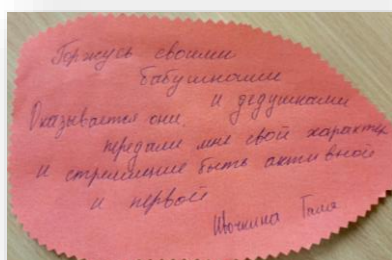 Горжусь своими
бабушками
и дедушками
Оказывается они
передали мне свой характер
и стремление быть активной
и первой
Галя